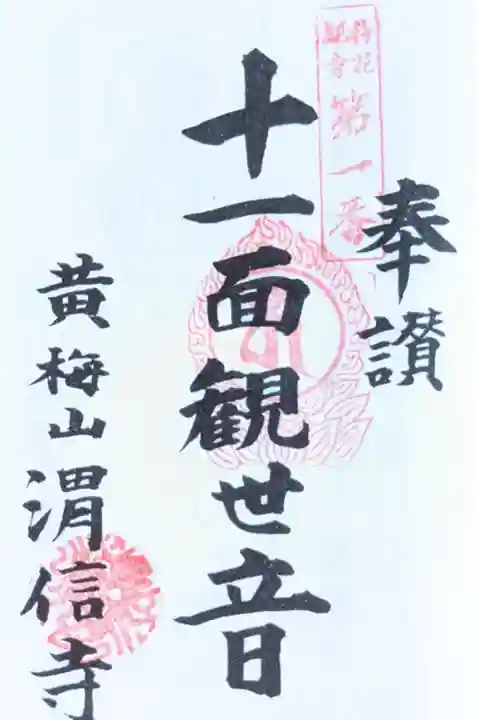 奉讃
十一面観世音
黄梅山渭信寺
第一番